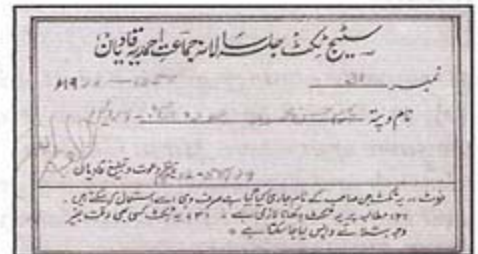 سٹیج ٹکٹ جلسہ سالانہ جماعت احمدیہ قادیان
نمبر ۱۹ء
نام و پتہ
ناظر دعوت و تبلیغ قادیان
نوٹ :۔ یہ ٹکٹ جن صاحب کے نام جاری کیا گیا ہے صرف وہی اسے استعمال کر سکتے ہیں ۔
(۲) مطالبہ پر یہ ٹکٹ دکھانا لازمی ہے ۔ (۳) یہ ٹکٹ کسی بھی وقت بغیر
وجہ بتائے واپس لیا جا سکتا ہے ۔